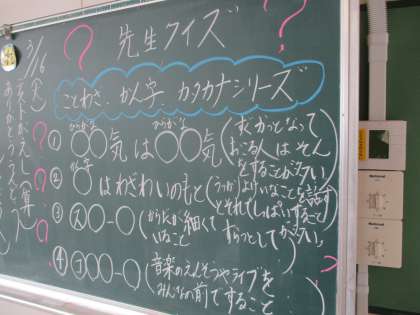 先生クイズ
ことわざ、かん字、カタカナシリーズ
3/16
(火)
テストがえし(算)
ありがとうをと
① ○○気は○○気(すぐカッとなって
からがな からがな
おこる人はそん
をすることが多い)
② ○はわざわいのもと(うっかりよけいなことを話す
かん字
とそれでしっぱいすること
が多い)
③ ス○ー○(からだが細くて
すらっとして
いること
④ コ○○ー○(音楽のえんそうやライブを
みんなの前ですること